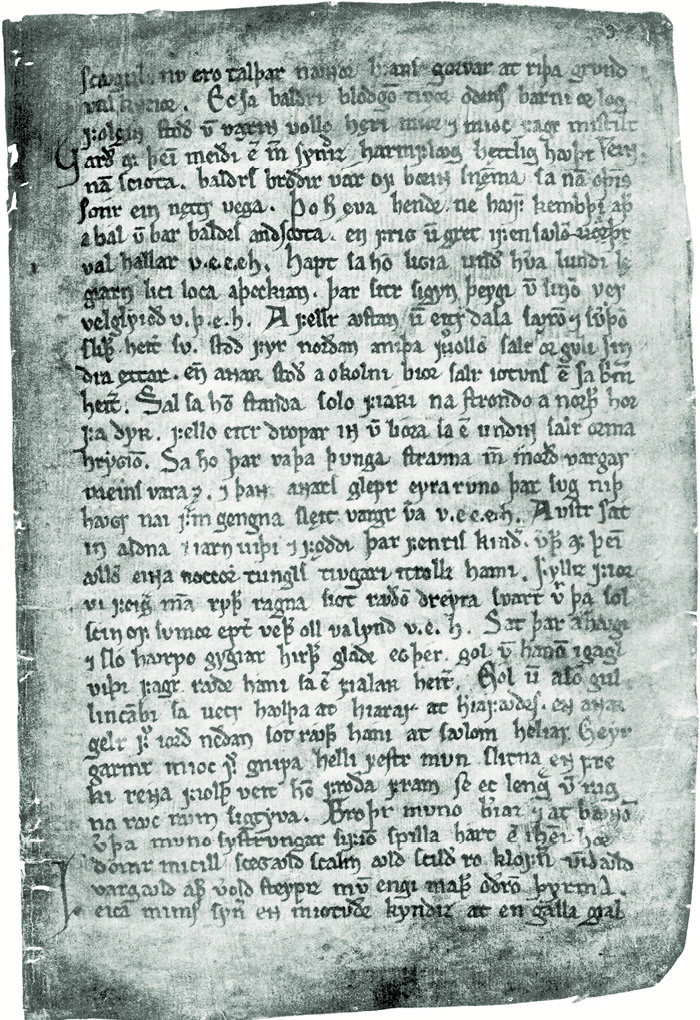 scagul. nv ero talþar naɴoʀ herianſ gorvar at riþa grvnd
valkyrior. Ec ſa baldri blódgō tivor odinſ barni ør lǫg
folgin stód v̄ vaxin vollo hęʀi mior ⁊ mioc fagr miſtilt
varþ af þei meiði ē m̄ syndiz harmflꜹg hettlig haþr ſciɴ
nā sciota. baldrſ brodir var of boriɴ ſnēma ſa nā oþinſ
ſonr ein nettr vega. Þo h̄ ęva hendr ne hꜹfuþ kembþi aþ
a bal v̄ bar baldrs andſcota. en frig v̄ gret ifenſꜹlō
val hallar v.e.e.eh. Hapt ſa hō licia undir hv̄a lundi lę
giarn lici loca aþeckian. þar sitr sigyn þeygi v̄ sinō ver
velglyiod v.þ.e.h. A fellr ꜹſtan v̄ eitr dala ſꜹxō ⁊ ſv̄þō
sliþ heit̄ ſv. ſtód fyr norðan aniþa fiollō ſalr ór gulli ſin
dra ęttar. en aɴaʀ ſtóð a okolni bior ſalr iotunſ ē ſa brim̄
heit̄. Sal ſa hō ſtanda ſolo fiaʀi na ſtrondo a norþ hor
fa dyʀ. fello eitr dropar iɴ v̄ lióra ſa ē undiɴ ſalr orma
hryGiō. Sa hō þar vaþa þunga ſtrꜹma m̄ meinſvara ⁊ morð vargar
⁊ þaɴ aɴarſ glepr eyra runo þar ſug niþ
hꜹGr nai frā gengna ſleit vargr v̄a v.e.e.eh. Auſtr ſat
in aldna ⁊ iarn viþi ⁊ fǫddi þar fenriſ kindir. v̄þ af þeī
ꜹllō eiɴa noccoʀ tungls tivgari itrollz hami. Fylliz fior
vi feigra māna ryþr ragna ſiot rꜹdō dreyra ſvart v̄þa ſol
ſcin of ſvmor ept̄ veþr oll valynd v.e. h. Sat þar a hꜹgi
⁊ ſló hꜹrpo gygiar hirþir gladr egþer. gól v̄ hanō igagl
viþi fagr rꜹdr hani ſa ē fialaʀ heit̄. Gól v̄ aſō gul
lincābi ſa vecr hꜹlþa at hiarar at heriafꜹdrſ. en aɴaʀ
gelr f̄ iord nedan ſot rꜹþr hani at ſꜹlom heliar. Geyr
garmr mioc f̄ gnipa helli feſtr mun ſlitna en fre
ki reɴa fiolþ veit hō frǫda fram ſe ec lengra v̄ rag
na rꜹc rꜹm ſigtyva. Brǫþr muno beriaz ⁊ at bꜹnō
v̄þaz muno syſtrungar ſifiō spilla hart ē iheī hor
domr micill ſceGꜹld ſcalm ꜹld ſcildir ro klofnir vindꜹld
vargꜹld aþr verold ſteypiz mun engi maþr odrō þyrma.
Leica mimſ ſynir en miotuðr kyndiz at en galla giall